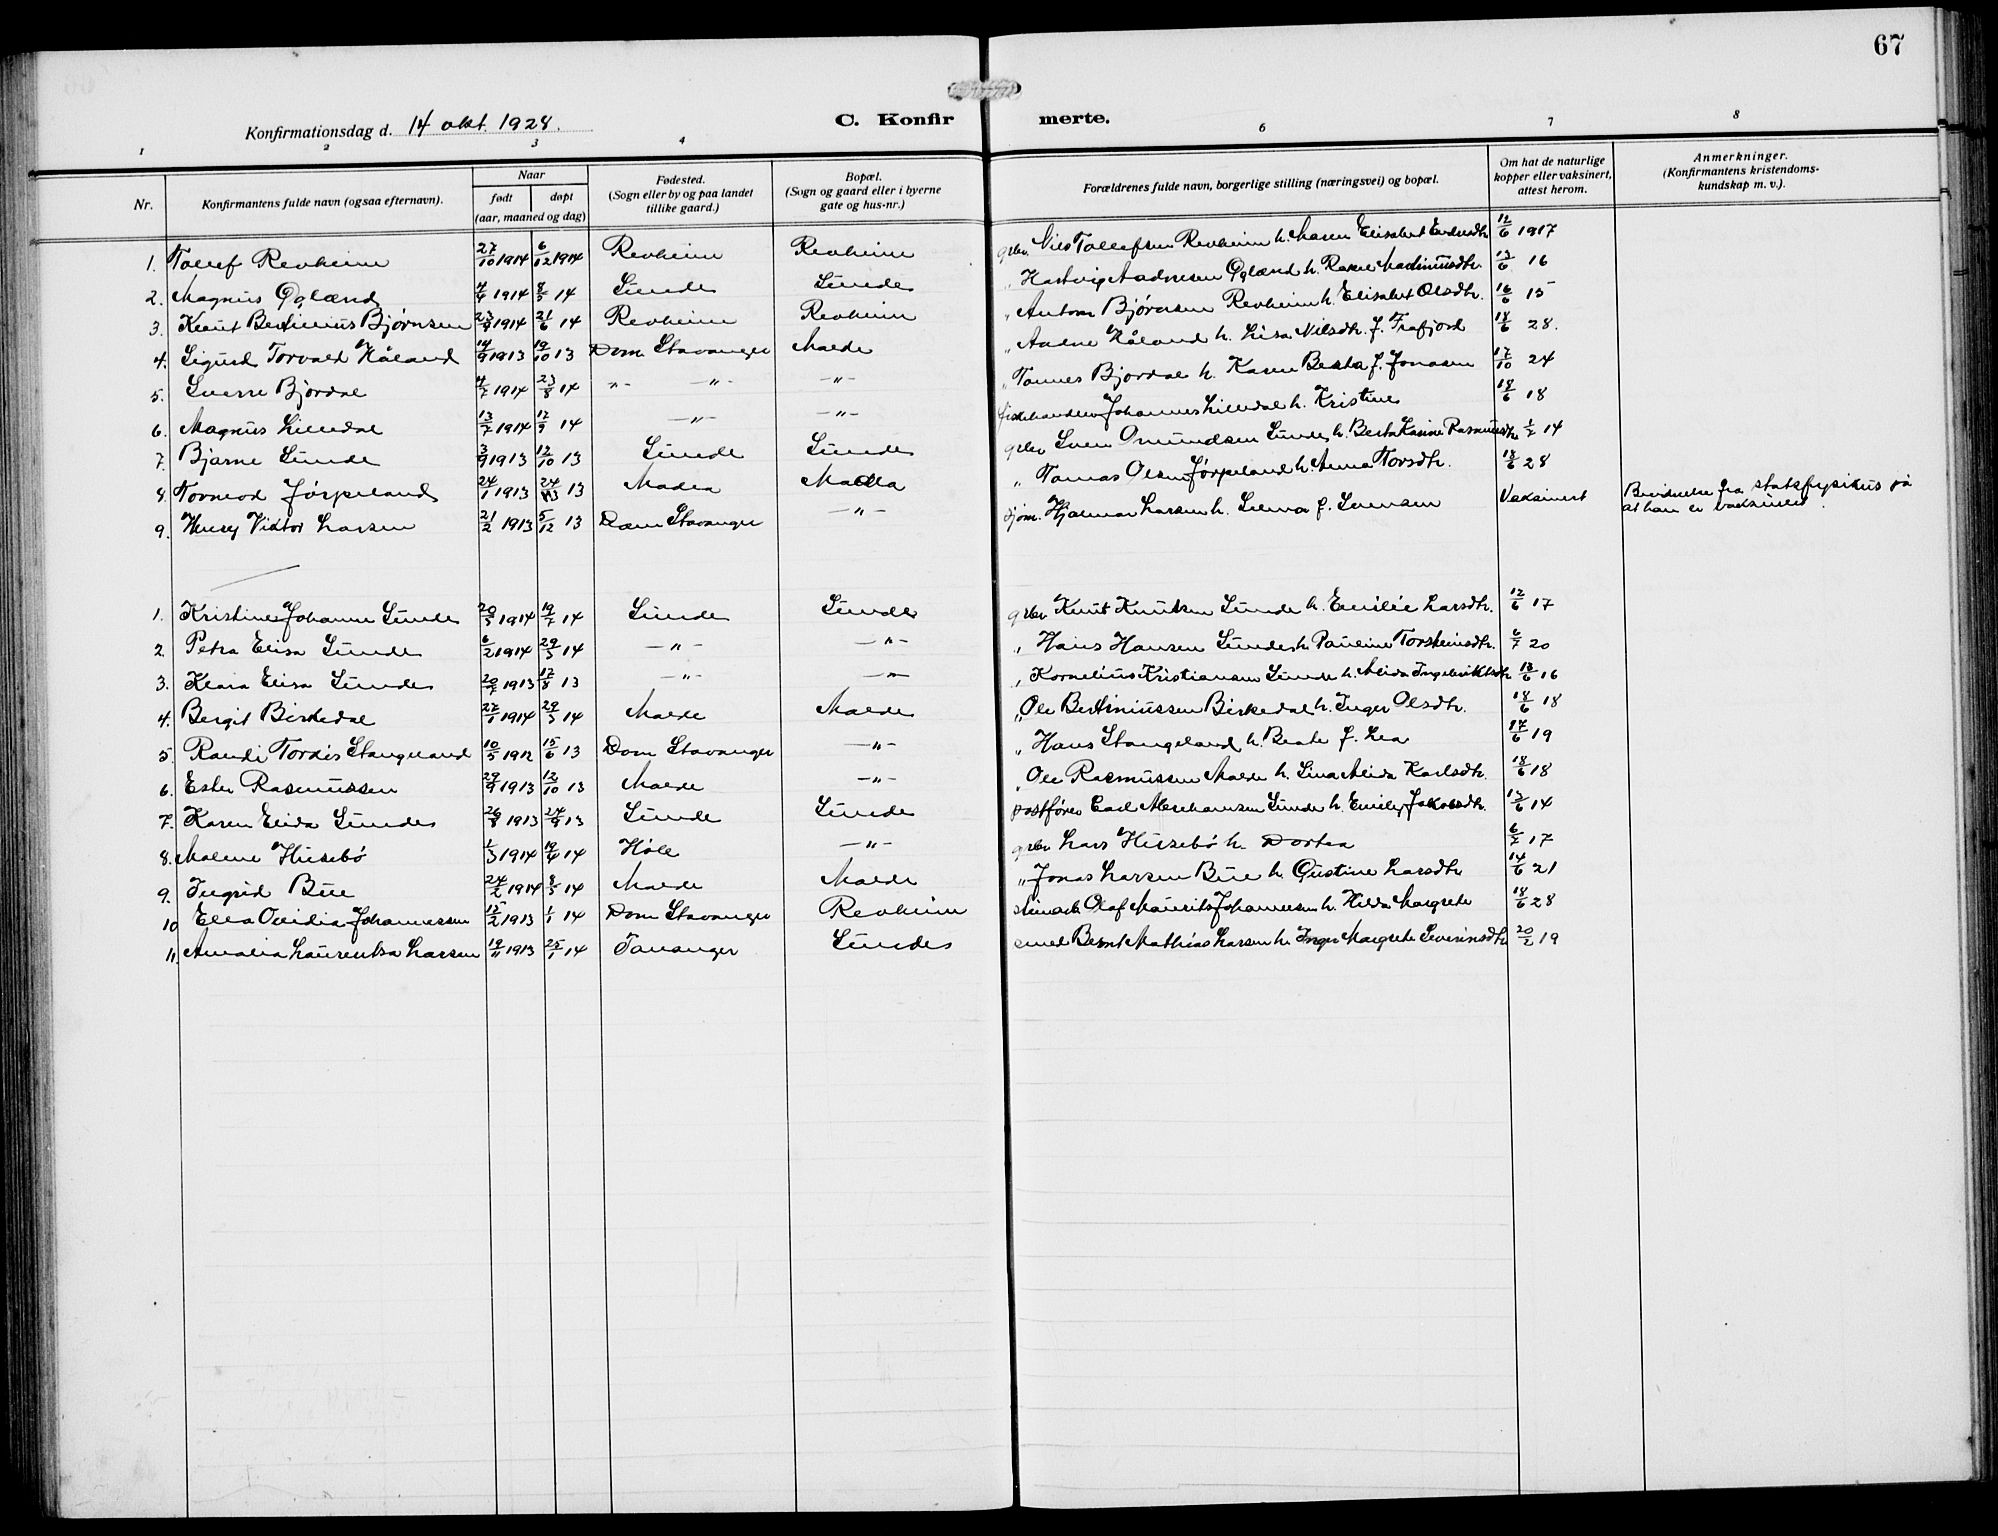 67
Konfirmationsdag d. 14 okt. 1928.
C. Konfir merte.
1 2 3 4 6 7 8
Nr.
Konfirmantens fulde navn (ogsaa efternavn).
Naar
født døpt
(aar, maaned og dag)
Fødested.
(Sogn eller by og paa landet
tillike gaard.)
Bopæl.
(Sogn og gaard eller i byerne
gate og hus-nr.)
Forældrenes fulde navn, borgerlige stilling (næringsvei) og bopæl.
Om hat de naturlige
kopper eller vaksinert,
attest herom.
Anmerkninger.
(Konfirmantens kristendoms-
kundskap m. v.).
1. Tollef Revheim 27/10 1914 6/12 1914 Revheim Revheim grbr. Nils Tollefsen Revheim h. Maren Elisabet 12/6 1917
2. Magnus Ogland 4/4 1914 8/5 14 Sunde Sunde " Hartvig Aadnesen Ogland h. Rakel 13/6 16
3. Knut Bertinius Bjørnsen 23/4 1914 21/6 14 Revheim Revheim " Anton Bjørnsen Revheim h. Elisabet Olsdtr. 16/6 15
4. Sigurd Torvald Håland 14/9 1913 19/10 13 Dom Stavanger Malde " Aadne Håland h. Lisa Nilsdtr. f. Frafjord 18/6 28.
5. Sverre Bjordal 4/7 1914 23/8 14 -"- -"- -"- " Tønnes Bjordal h. Karen Berta f. Jonasen 17/10 24
6. Magnus Liendal 13/7 1914 12/9 14 -"- -"- fiskehandler Johannes Liendal h. Kristine 18/6 18
7. Bjarne Sunde 3/9 1913 12/10 13 Sunde Sunde grbr Sven Omundsen Sunde h. Berta Karine Rasmusdtr 1/7 14
8. Tormod Jørpeland 24/1 1913 24/3 13 Madla Madla " Tomas Olsen Jørpeland h. Anna Torsdtr. 18/6 28
9. Henry Viktor Larsen 21/2 1913 5/12 13 Dom Stavanger -"- sjøm. Hjalmar Larsen h. Vaksinert Bevidnelse fra statsfysikus på
at han er vaksinert.
1. Kristine Johanne Sunde 20/5 1914 19/7 14 Sunde Sunde grbr Knut Knutsen Sunde h. Emilie Larsdtr. 12/6 17
2. Petra Elisa Sunde 6/2 1914 29/3 14 -"- -"- " Hans Hansen Sunde h. Pauline Torsteinsdtr. 6/7 20
3. Klara Elisa Sunde 20/7 1913 17/8 13 -"- -"- " Kornelius Kristiansen Sunde h. Alida Ingebriktsdtr 13/6 16
4. Bergit Birkedal 27/1 1914 29/3 14 Malde Malde " Ole Bertiniussen Birkedal h. Inger Olsdtr. 18/6 18
5. Randi Tordis Stangeland 10/5 1912 15/6 13 Dom Stavanger -"- " Hans Stangeland h. Beate f. Lea 17/6 19
6. Ester Rasmussen 29/9 1913 12/10 13 Malde -"- " Ole Rasmussen Malde h. Lina Alida Karlsdtr. 18/6 18
7. Karen Elida Sunde 26/8 1913 24/9 13 Sunde Sunde postfører Carl Abrahamsen Sunde h. Emily Jakobsdtr. 13/6 14
8. Malene Husebø 1/3 1914 19/4 14 Høle -"- grbr Lars Husebø h. Dortea 6/7 17
9. Ingrid Bue 24/2 1914 8/3 14 Malde Malde " Jonas Larsen Bue h. Gustine Larsdtr 14/6 21
10 Ella Ovidia Johannessen 15/2 1913 1/1 14 Dom Stavanger Revheim Olaf Maurits Johannesen h. Hilda Margrete 18/6 28
11. Amalia Laurentsa Larsen 19/11 1913 25/1 14 Tananger Sunde smed Bernt Mathias Larsen h. Inger Margrete Severinsdtr 20/2 19